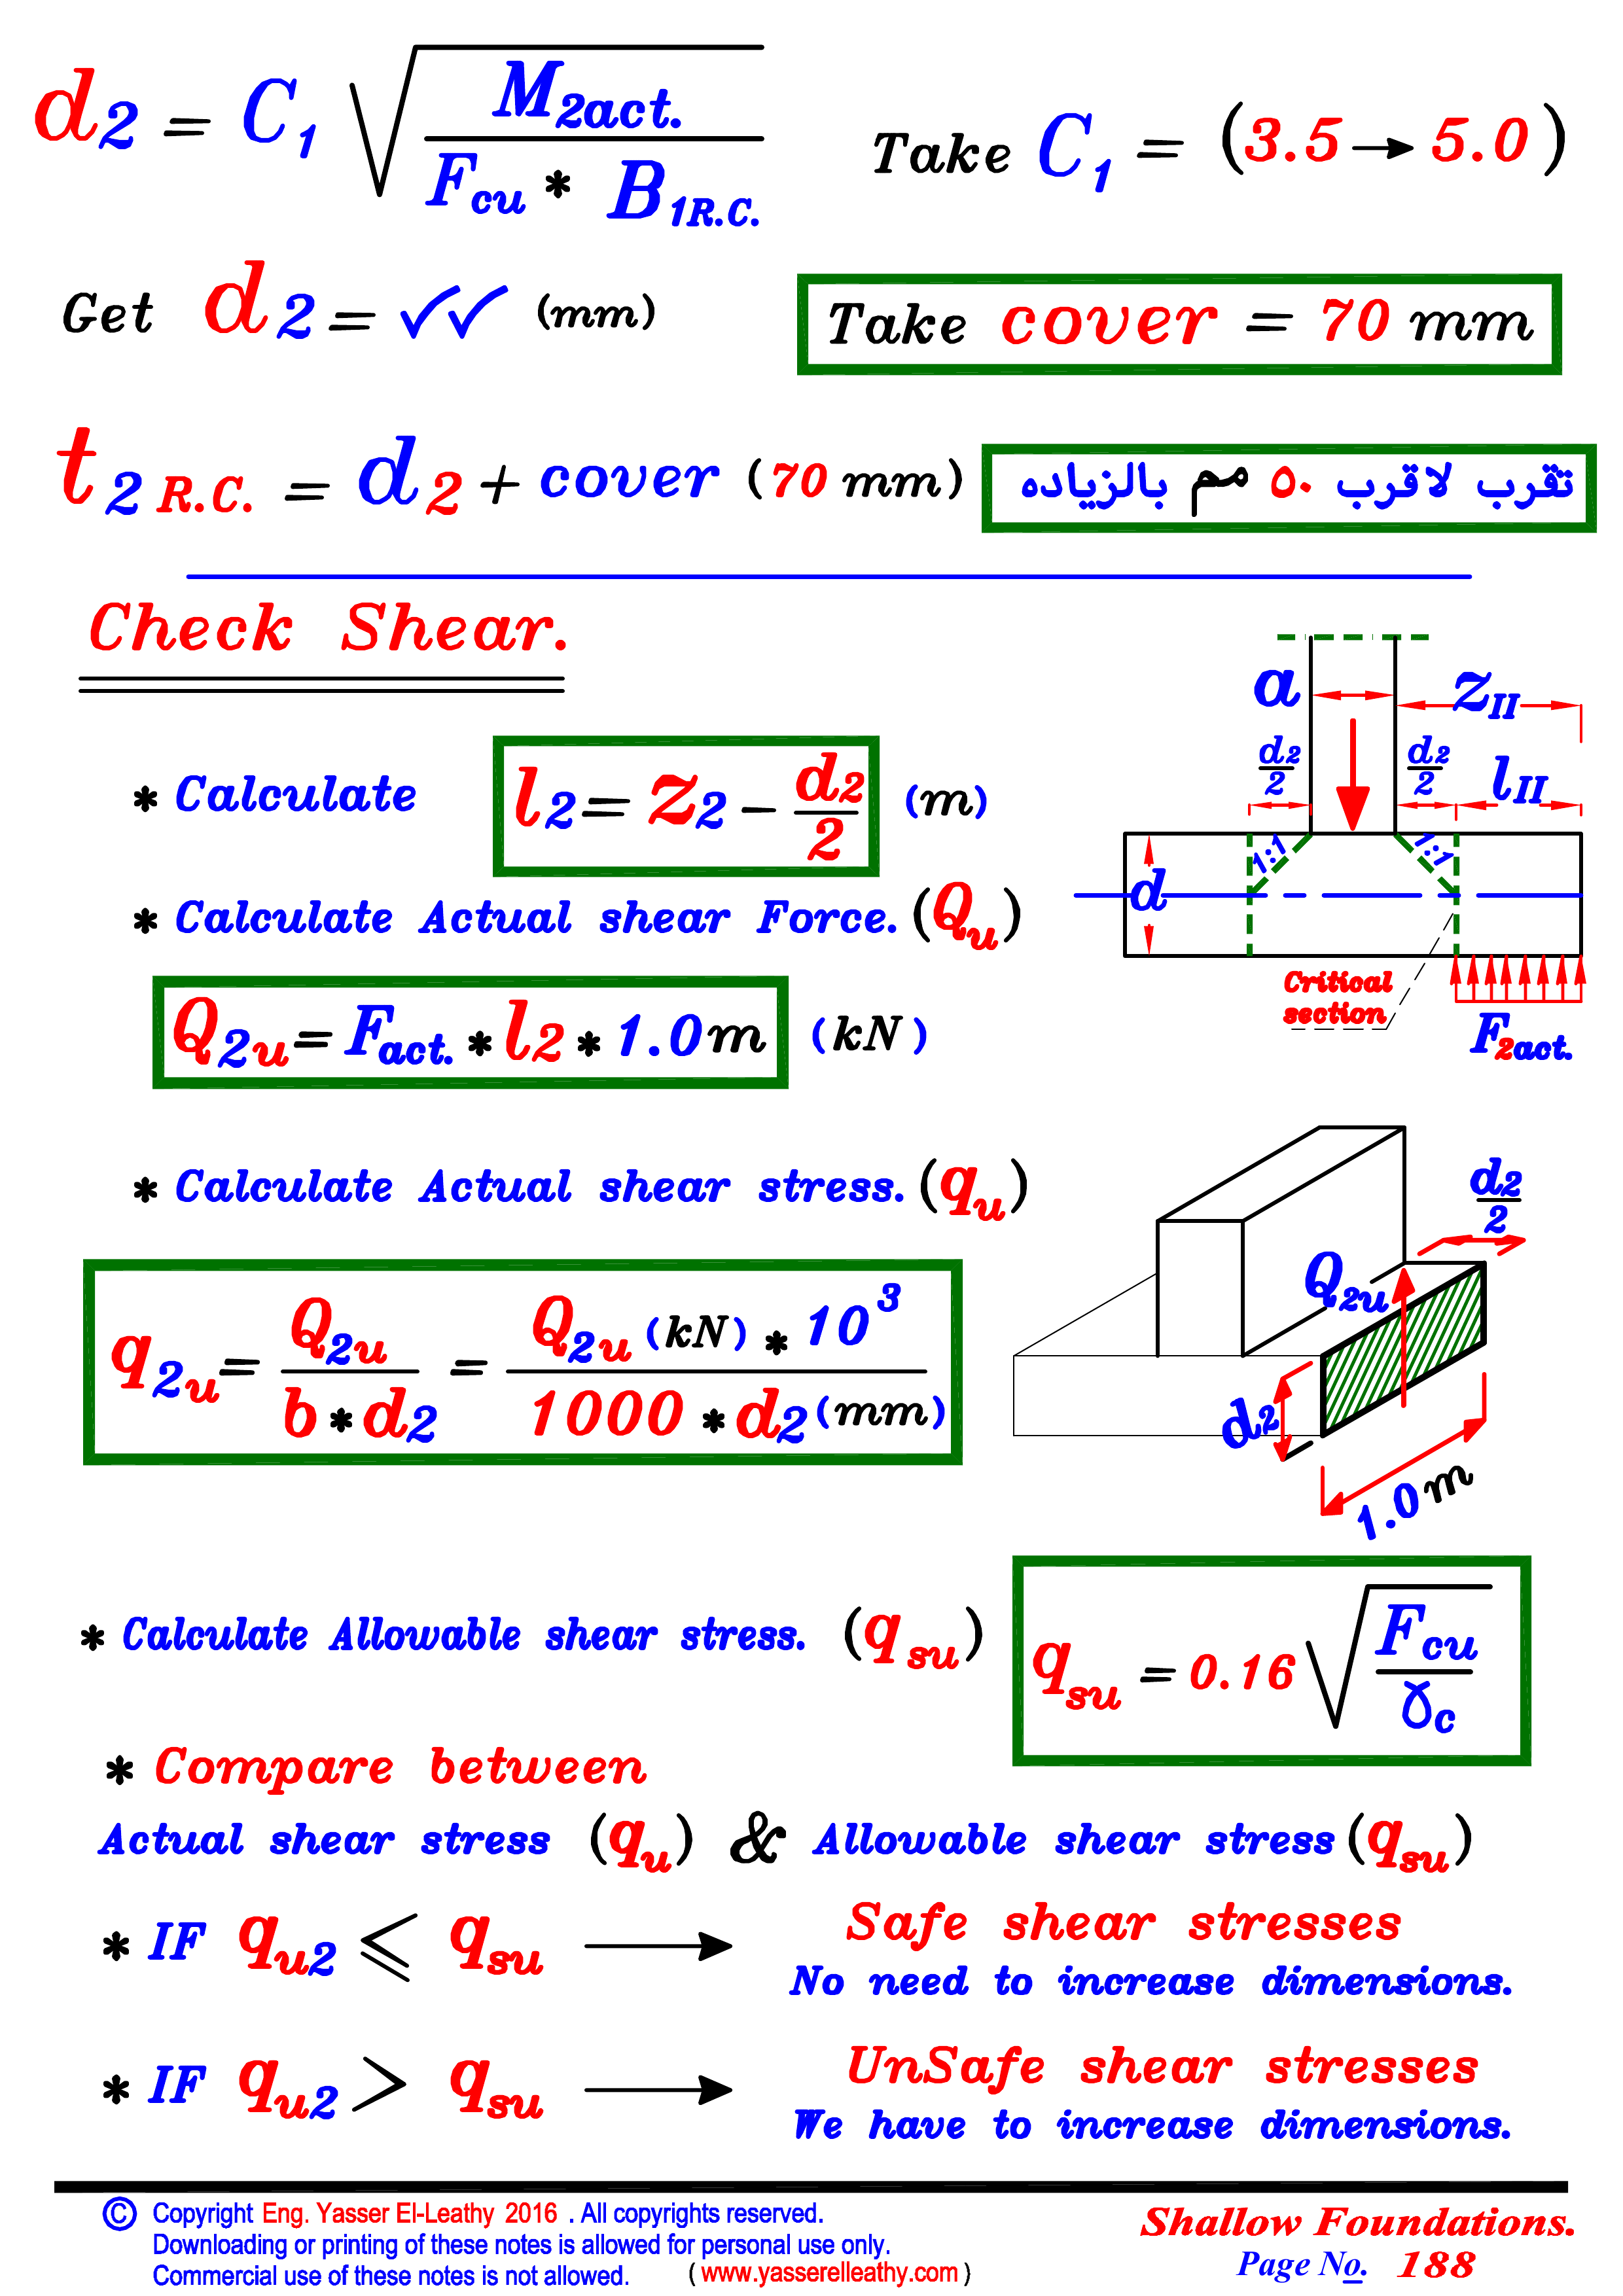 d2 = C1 √(M2act. / (Fcu * B1R.C.))    Take C1 = (3.5 → 5.0)
Get d2 = ✓✓ (mm)    Take cover = 70 mm
t2 R.C. = d2 + cover (70 mm)    تقرب لاقرب ٥٠ مم بالزياده
Check Shear.
a
zII
d2/2
d2/2
lII
1:1
1:1
d
Critical
section
F2act.
* Calculate l2 = z2 - d2/2 (m)
* Calculate Actual shear Force. (Qu)
Q2u = Fact. * l2 * 1.0 m (kN)
* Calculate Actual shear stress. (qu)
q2u = Q2u / (b * d2) = Q2u (kN) * 10³ / (1000 * d2 (mm))
d2/2
Q2u
d2
1.0 m
* Calculate Allowable shear stress. (qsu)    qsu = 0.16 √(Fcu / ɣc)
* Compare between
Actual shear stress (qu) & Allowable shear stress (qsu)
* IF qu2 ⩽ qsu → Safe shear stresses
No need to increase dimensions.
* IF qu2 > qsu → UnSafe shear stresses
We have to increase dimensions.
© Copyright Eng. Yasser El-Leathy 2016 . All copyrights reserved.
Downloading or printing of these notes is allowed for personal use only.
Commercial use of these notes is not allowed. ( www.yasserelleathy.com )
Shallow Foundations.
Page No. 188